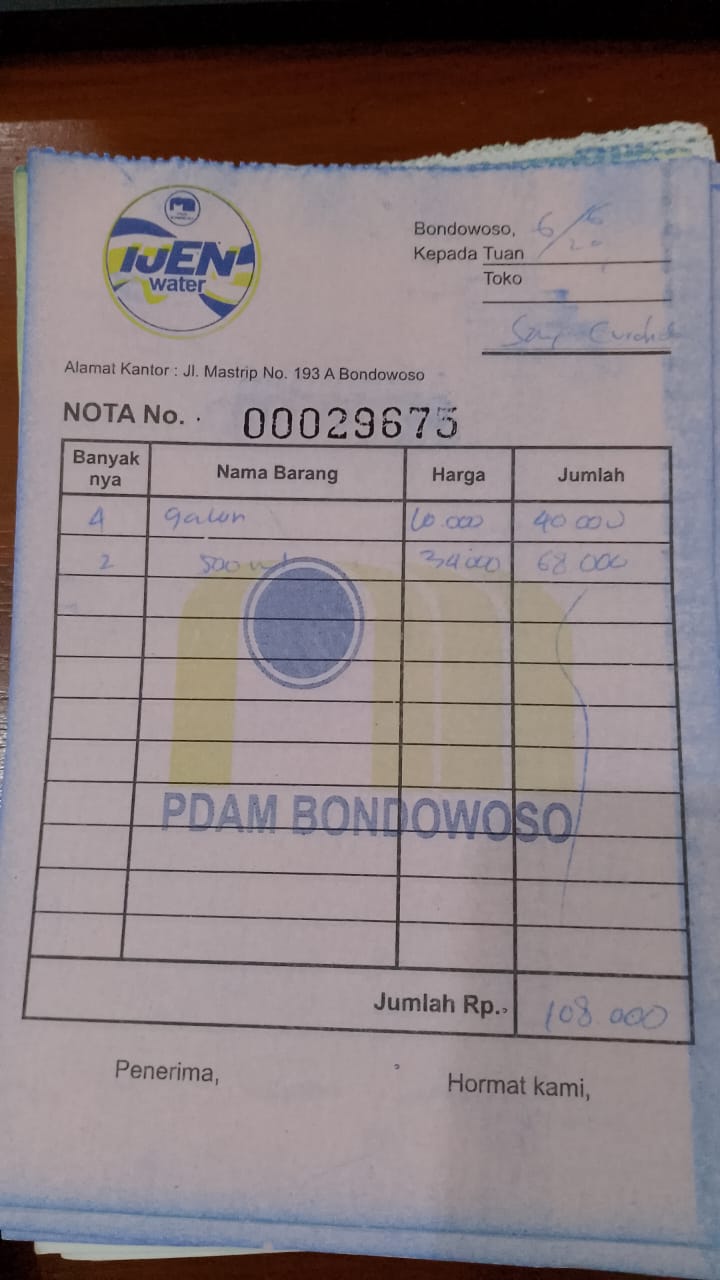 IJEN
water
Bondowoso, 6/6
20
Kepada Tuan
Toko
Alamat Kantor : Jl. Mastrip No. 193 A Bondowoso
NOTA No. 00029675
Banyak nya Nama Barang Harga Jumlah
4 galon 10.000 40 000
2 500 ml 34000 68 000
PDAM BONDOWOSO
Jumlah Rp. 108 000
Penerima, Hormat kami,